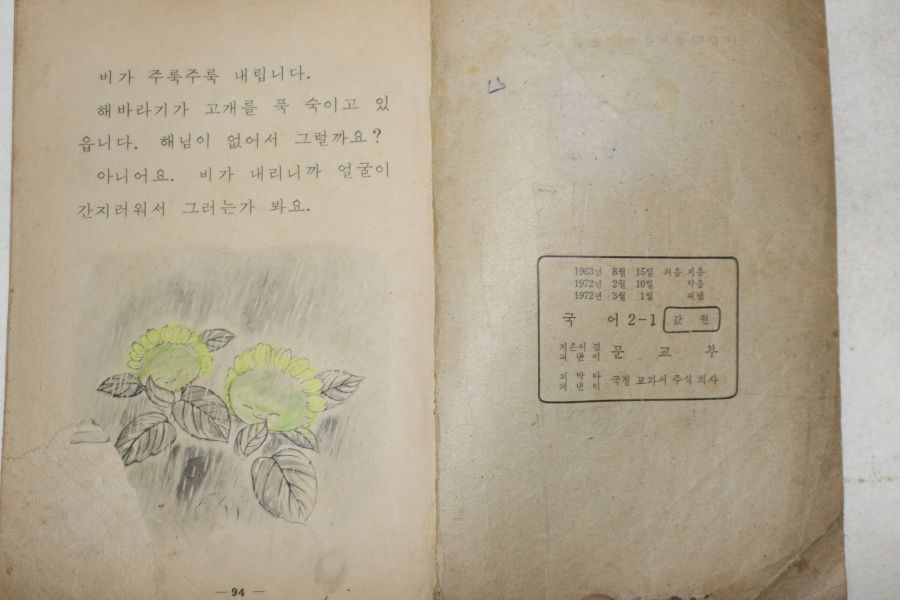 비가 주룩주룩 내립니다.
해바라기가 고개를 푹 숙이고 있
읍니다. 해님이 없어서 그럴까요?
아니어요. 비가 내리니까 얼굴이
간지러워서 그러는가 봐요.
— 94 —
1963년 8월 15일 처음 지음
1972년 2월 10일 박음
1972년 3월 1일 펴냄
국 어 2-1 값 원
지은이 겸
펴낸이 문 교 부
박아
펴낸이 국정 교과서 주식 회사